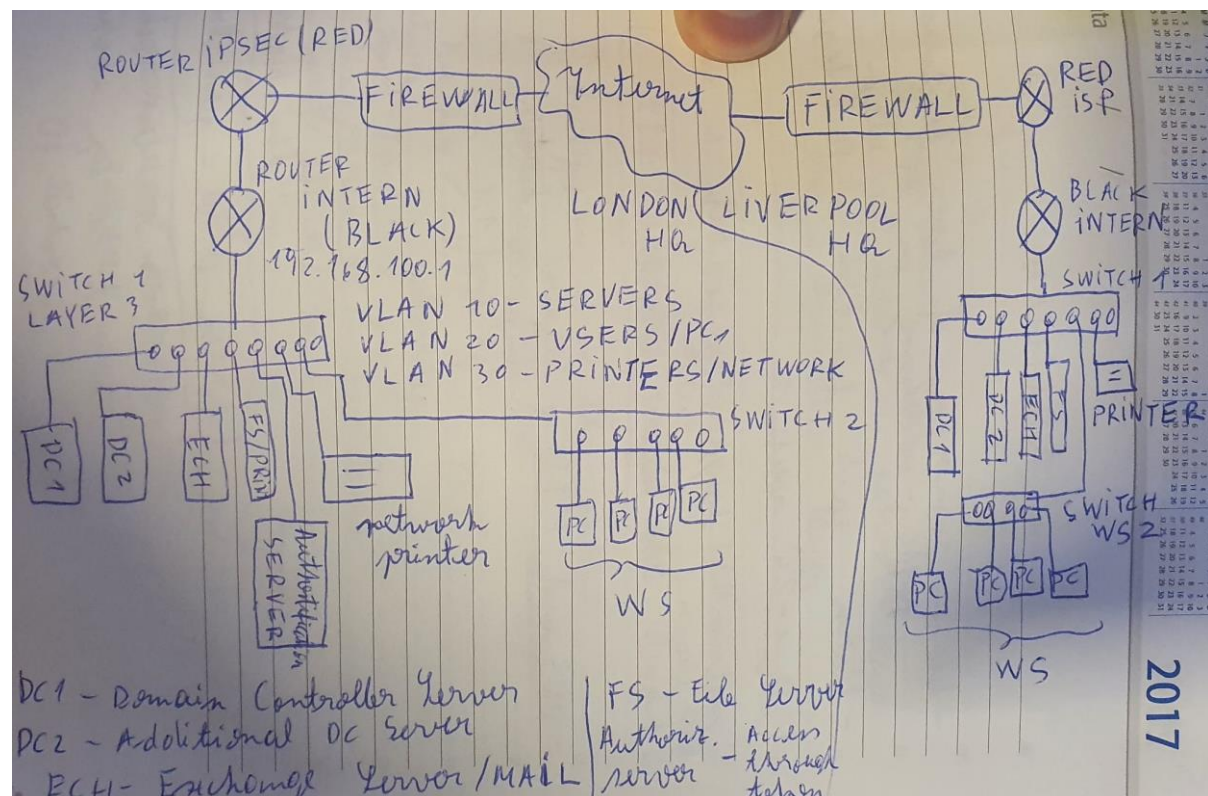 ROUTER IPSEC (RED)
FIREWALL
Internet
FIREWALL
RED
ISR
ROUTER
INTERN
(BLACK)
192.168.100.1
LONDON
HQ
LIVERPOOL
HQ
BLACK
INTERN
SWITCH 1
LAYER 3
VLAN 10 - SERVERS
VLAN 20 - USERS/PC1
VLAN 30 - PRINTERS/NETWORK
SWITCH 1
DC1
DC2
ECH
FS/PRIN
SERVER
network
printer
SWITCH 2
PC
PC
PC
PC
WS
DC1
DC2
ECH
FS
PRINTER
SWITCH
WS 2
PC
PC
PC
PC
WS
DC1 - Domain Controller Server
DC2 - Additional DC Server
ECH - Exchange Server/MAIL
FS - File Server
Authoriz. Access
server - through
token
2017